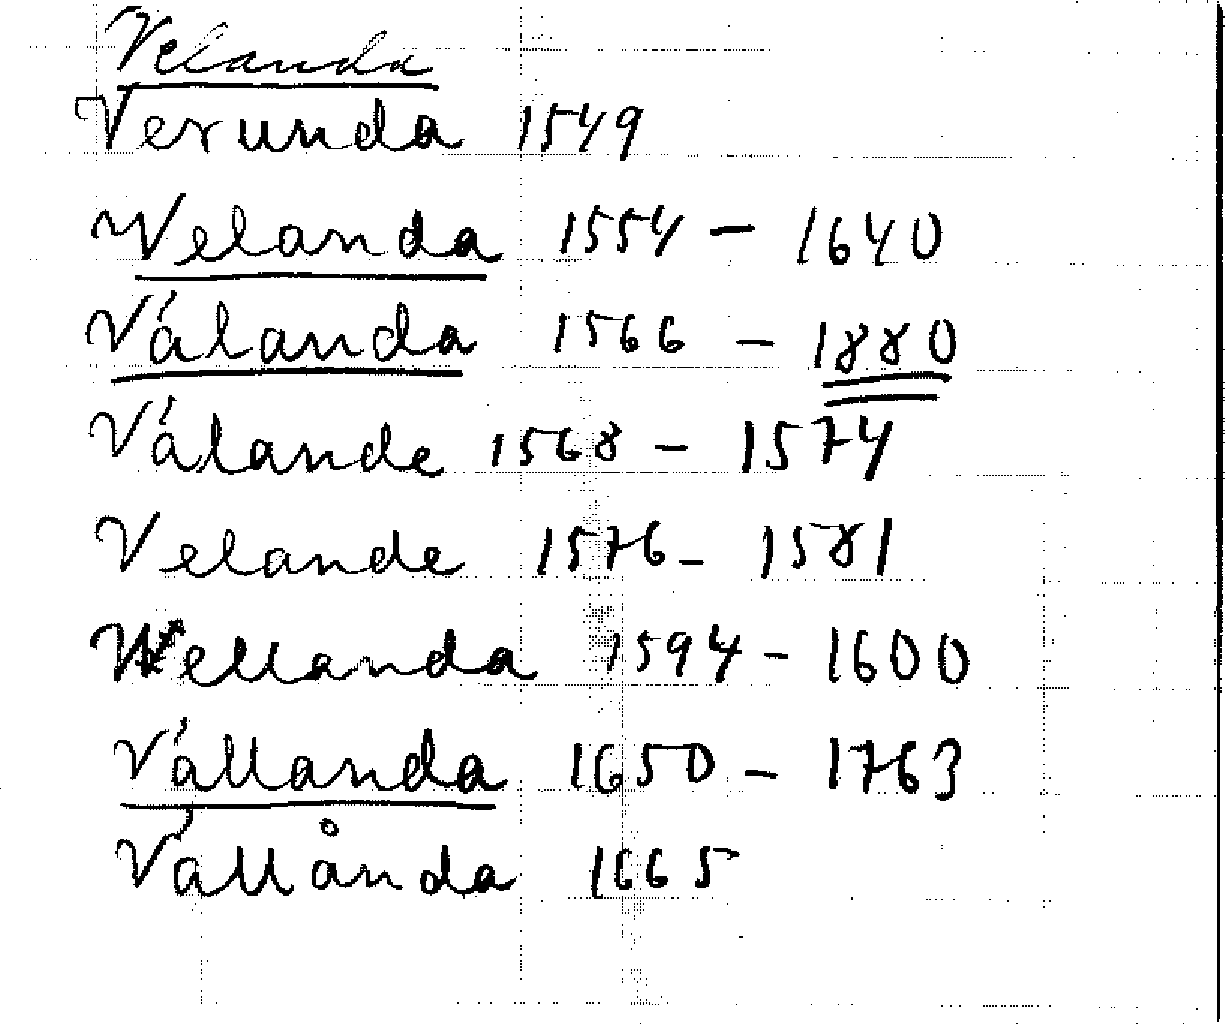 Velanda
Verunda 1549
Welanda 1554 - 1640
Válanda 1566 - 1880
Válande 1568 - 1574
Velande 1576 - 1581
Wellanda 1594 - 1600
Vállanda 1650 - 1763
Vállånda 1665